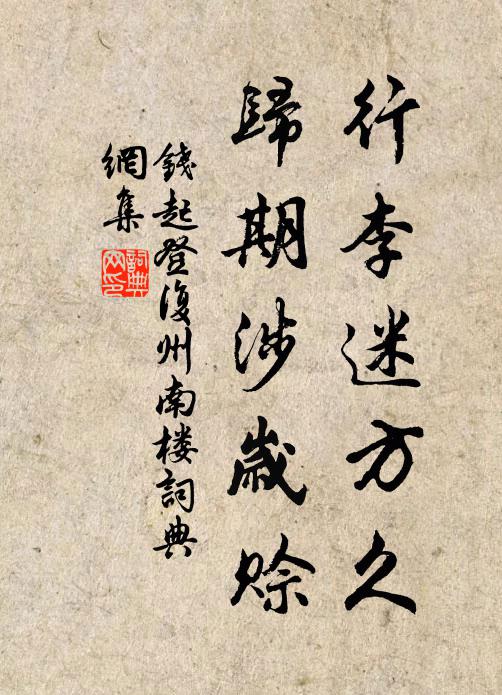 行李迷方久
歸期涉歲賒
錢起登復州南楼詞典
網集
詞典
网印